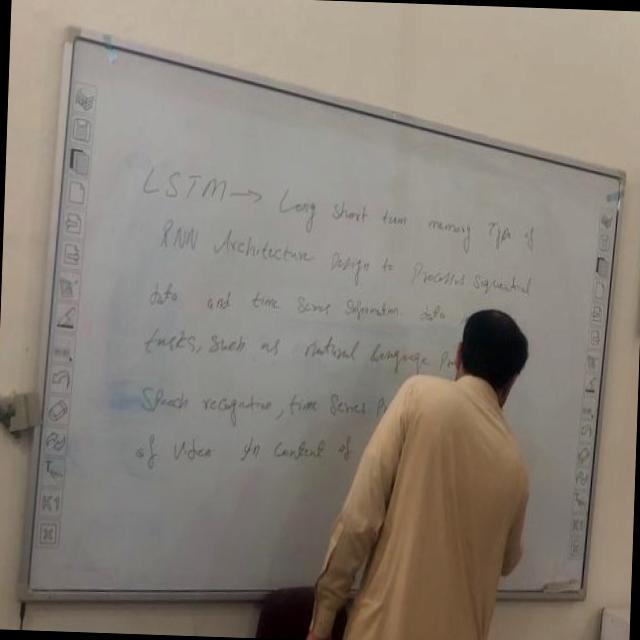 LSTM → Long Short term memory Type of
RNN Architecture Design to Process sequential
data and time Series data
tasks, such as natural language
Speech recognition, time Series
of Video in Content of